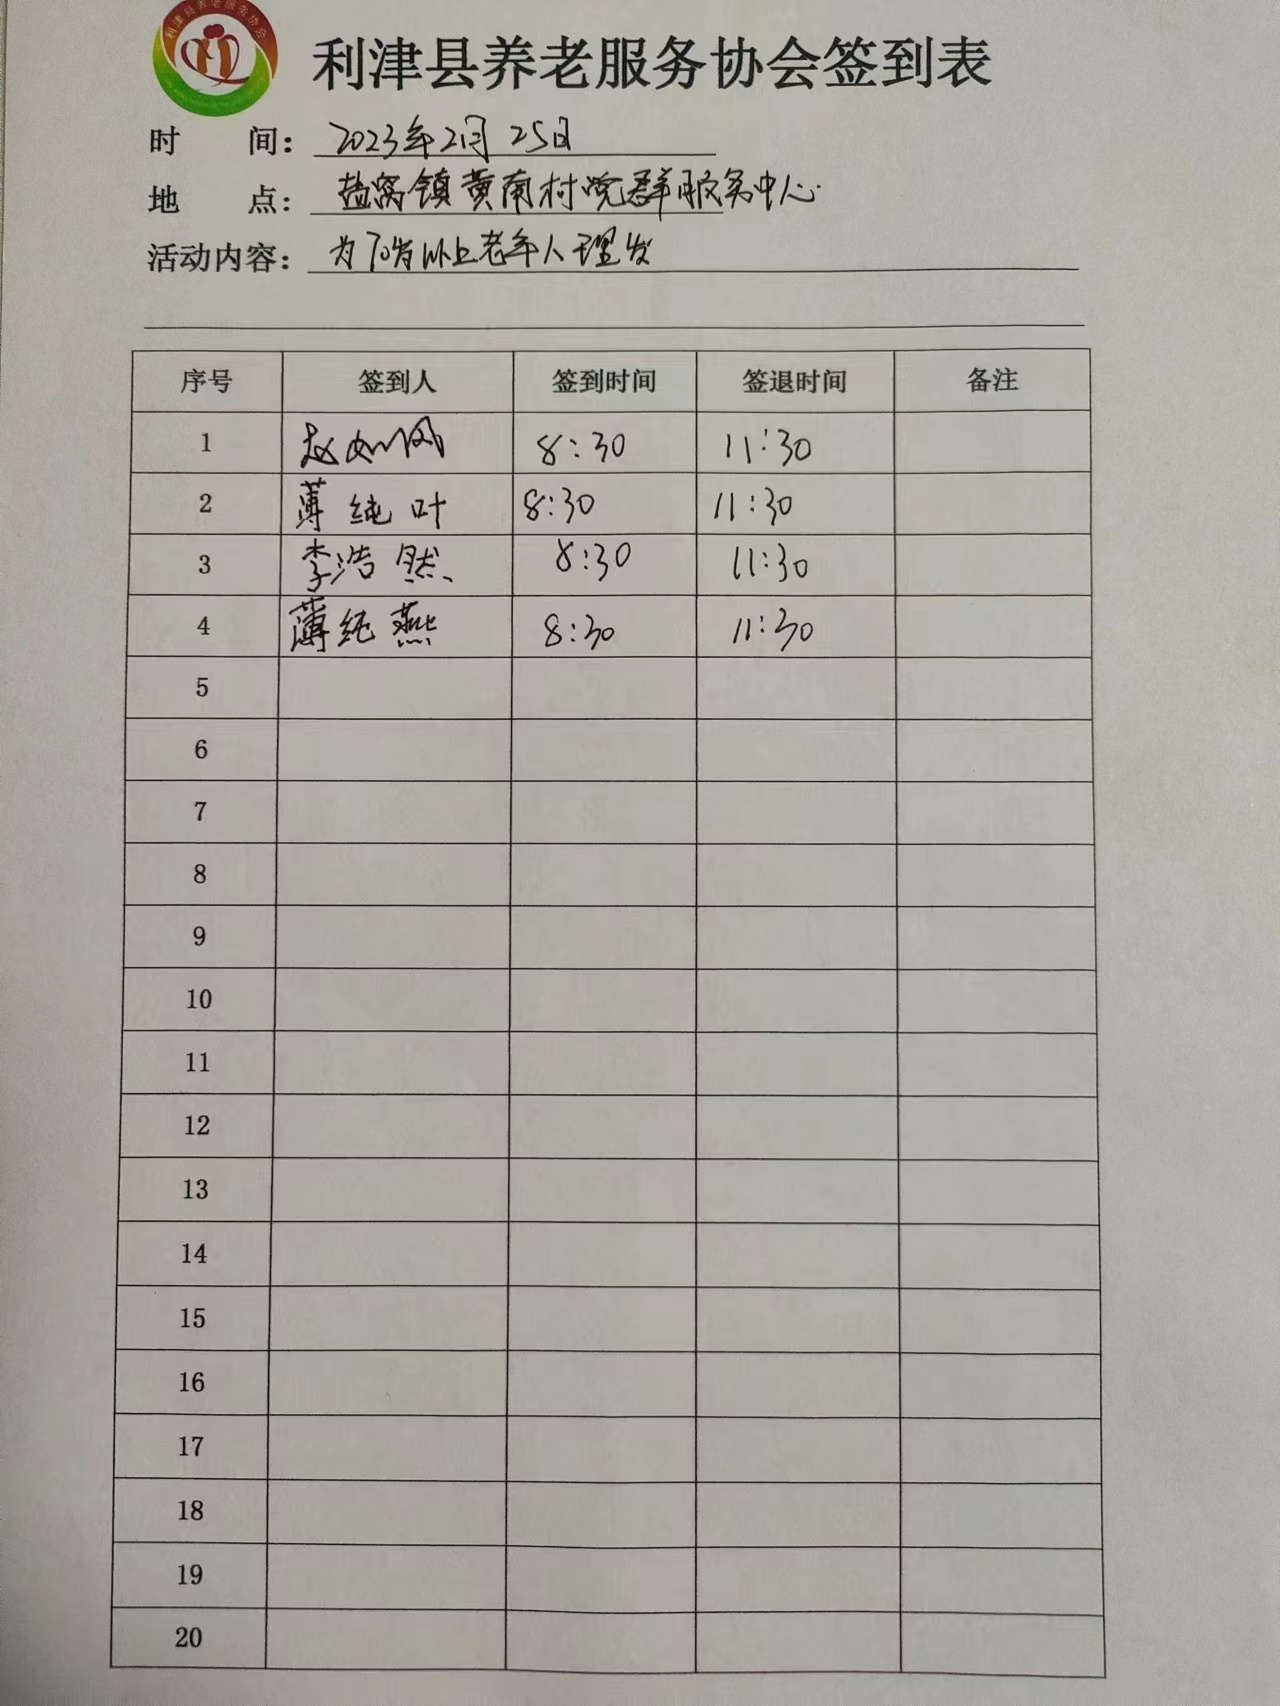 利津县养老服务协会
利津县养老服务协会签到表
时 间： 2023年2月25日
地 点： 盐窝镇黄南村党群服务中心
活动内容： 为70岁以上老年人理发
序号 签到人 签到时间 签退时间 备注
1 赵如风 8:30 11:30
2 薄纯叶 8:30 11:30
3 李浩然 8:30 11:30
4 薄纯燕 8:30 11:30
5
6
7
8
9
10
11
12
13
14
15
16
17
18
19
20